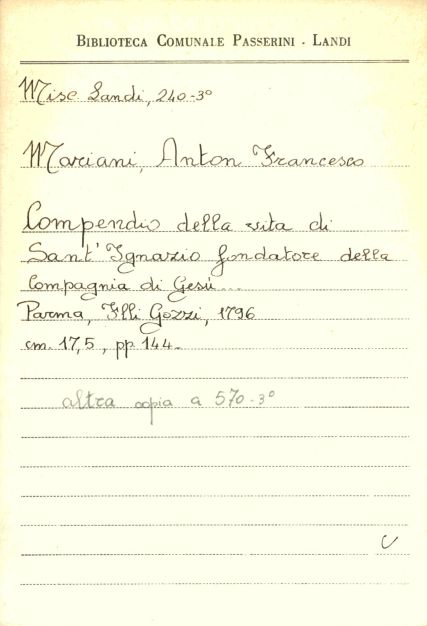 BIBLIOTECA COMUNALE PASSERINI - LANDI
Misc Landi, 240-3°
Mariani, Anton Francesco
Compendio della vita di
Sant'Ignazio fondatore della
Compagnia di Gesù...
Parma, F.lli Gozzi, 1796
cm. 17,5, pp 144.
altra copia a 570-3°